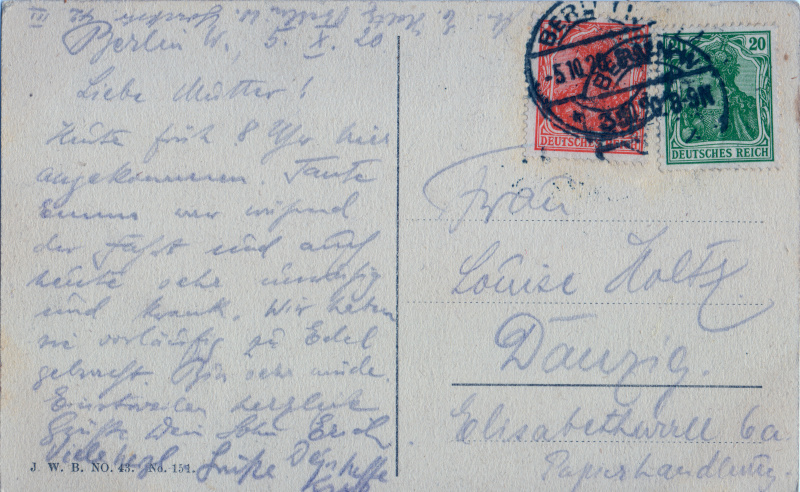 Berlin W., 5. X. 20
Liebe Mutter!
Heute früh 8 Uhr hier
angekommen. Tante
Emma war während
der Fahrt und auch
heute sehr unruhig
und krank. Wir haben
sie vorläufig zu Edel
gebracht. Bin sehr müde.
Einstweilen herzliche
Grüße Dein Sohn Erich
Viele herzl. Grüße Dein Neffe
J. W. B. NO. 43. No. 151.
BERLIN W
-5.10.20
8-9N
DEUTSCHES REICH
20
DEUTSCHES REICH
Frau
Louise Holtz
Danzig.
Elisabethwall 6a
Papierhandlung.